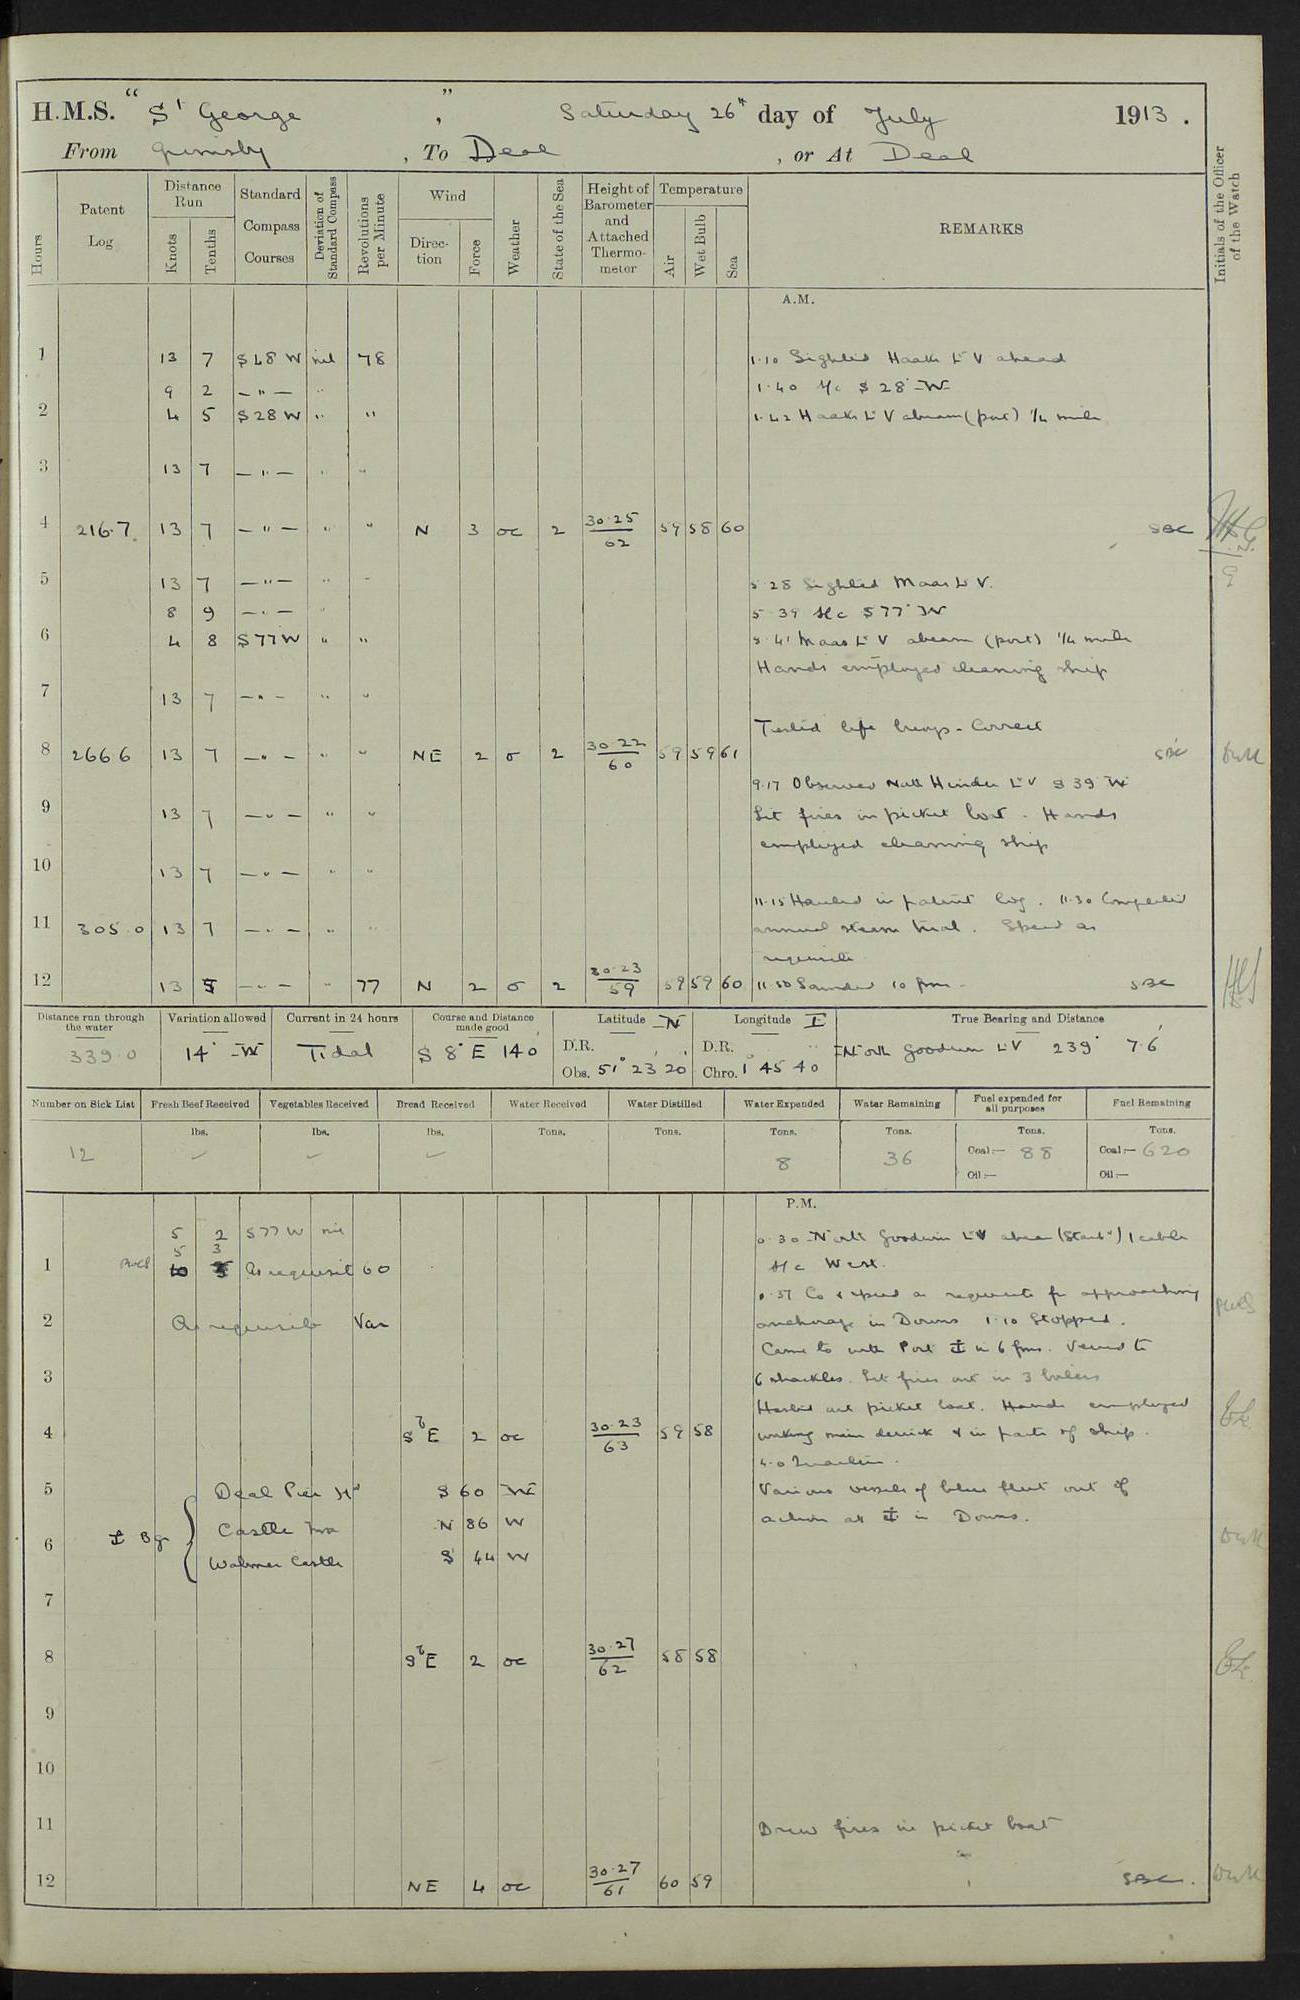 H.M.S. "St George", Saturday 26th day of July 1913.
From Grimsby, To Deal, or At Deal
Hours
Patent Log
Distance Run
Knots
Tenths
Standard Compass Courses
Deviation of Standard Compass
Revolutions per Minute
Wind
Direction
Force
Weather
State of the Sea
Height of Barometer and Attached Thermometer
Temperature
Air
Wet Bulb
Sea
REMARKS
Initials of the Officer of the Watch
A.M.
1 13 7 S 48 W nil 78 1.10 Sighted Haaks Lt V ahead
9 2 — " — " 1.40 A/c S 28° W
2 4 5 S 28 W " " 1.42 Haaks Lt V abeam (port) 1/4 mile
3 13 7 — " — " "
4 216.7 13 7 — " — " " N 3 oc 2 30.25 62 59 58 60 SBC
5 13 7 — " — " " 5.28 Sighted Maas Lt V.
8 9 — " — " 5.39 A/c S 77° W
6 4 8 S 77 W " " 5.41 Maas Lt V abeam (port) 1/4 mile
Hands employed cleaning ship
7 13 7 — " — " "
Tested life buoys - Correct
8 266.6 13 7 — " — " " NE 2 o 2 30.22 60 59 59 61 SBC
9.17 Observed North Hinder Lt V S 39 W
9 13 7 — " — " " Lit fires in picket boat. Hands
employed cleaning ship
10 13 7 — " — " "
11.15 Hauled in patent log. 11.30 Completed
11 305.0 13 7 — " — " " annual steam trial. Speed as
requisite
12 13 5 — " — " 77 N 2 o 2 30.23 59 59 59 60 11.50 Sounded 10 fms. SBC
Distance run through the water 339.0
Variation allowed 14° W
Current in 24 hours Tidal
Course and Distance made good S 8° E 140'
Latitude N
D.R.
Obs. 51° 23' 20"
Longitude E
D.R.
Chro. 1° 45 40
True Bearing and Distance
North Goodwin LV 239° 7.6'
Number on Sick List 12
Fresh Beef Received lbs. ✓
Vegetables Received lbs. ✓
Bread Received lbs. ✓
Water Received Tons.
Water Distilled Tons.
Water Expended Tons. 8
Water Remaining Tons. 36
Fuel expended for all purposes Tons. Coal:— 88 Oil:—
Fuel Remaining Tons. Coal:— 620 Oil:—
P.M.
5 2 S 77 W nil 0.30 North Goodwin LtV abeam (Starbd) 1 cable
5 3 A/c West.
1 As requisite 60
0.57 Co & speed as requisite for approaching
2 As requisite Var anchorage in Downs 1.10 Stopped.
Came to with Port ⚓ in 6 fms. Veered to
3 6 shackles. Let fires out in 3 boilers
Hoisted out picket boat. Hands employed
4 S'b'E 2 oc 30.23 63 59 58 working main derrick & in parts of ship.
4.0 Quarters.
5 Deal Pier Hd S 60 W Various vessels of blue fleet out of
Castle N 86 W action at ⚓ in Downs.
6 ⚓ Bgs { Walmer Castle S 44 W
7
8 S'b'E 2 oc 30.27 62 58 58
9
10
11 Drew fires in picket boat
12 NE 4 oc 30.27 61 60 59 SBC.